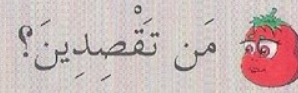 مَن تَقْصِدِينَ؟